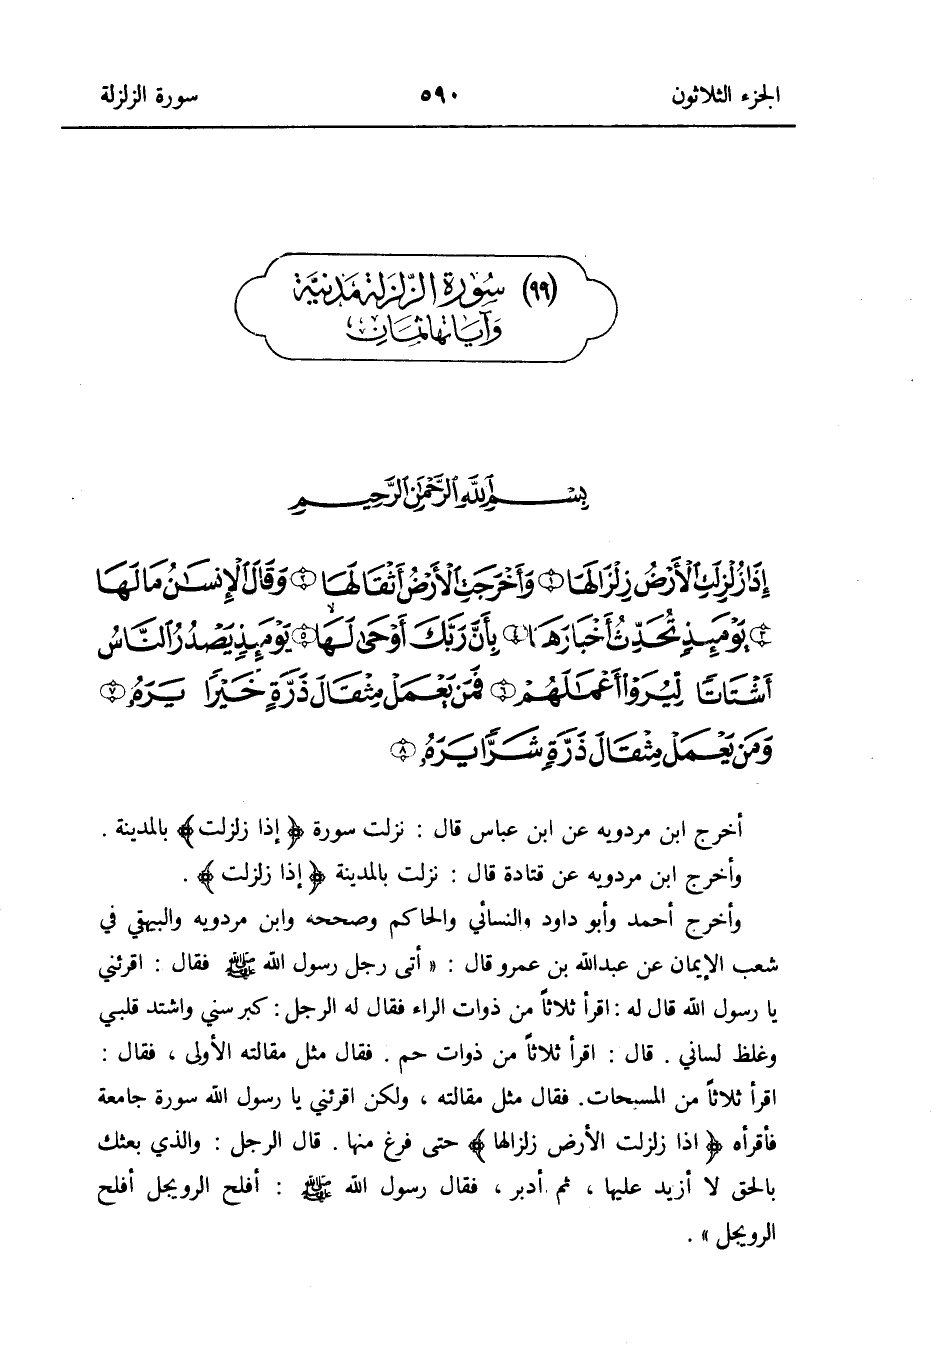 الجزء الثلاثون ٥٩٠ سورة الزلزلة
(٩٩) سُورَة الزّلزَلة مَدنيَّة
وَآيَاتها ثمَان
بِسْمِ اللَّهِ الرَّحْمَٰنِ الرَّحِيمِ
إِذَا زُلْزِلَتِ الْأَرْضُ زِلْزَالَهَا ١ وَأَخْرَجَتِ الْأَرْضُ أَثْقَالَهَا ٢ وَقَالَ الْإِنسَٰنُ مَا لَهَا
٣ يَوْمَئِذٍ تُحَدِّثُ أَخْبَارَهَا ٤ بِأَنَّ رَبَّكَ أَوْحَىٰ لَهَا ٥ يَوْمَئِذٍ يَصْدُرُ النَّاسُ
أَشْتَاتًا لِّيُرَوْا أَعْمَٰلَهُمْ ٦ فَمَن يَعْمَلْ مِثْقَالَ ذَرَّةٍ خَيْرًا يَرَهُ ٧
وَمَن يَعْمَلْ مِثْقَالَ ذَرَّةٍ شَرًّا يَرَهُ ٨
أخرج ابن مردويه عن ابن عباس قال : نزلت سورة ﴿ إذا زلزلت ﴾ بالمدينة .
وأخرج ابن مردويه عن قتادة قال : نزلت بالمدينة ﴿ إذا زلزلت ﴾ .
وأخرج أحمد وأبو داود والنسائي والحاكم وصححه وابن مردويه والبيهقي في
شعب الإيمان عن عبدالله بن عمرو قال : « أتى رجل رسول الله ﷺ فقال : اقرئني
يا رسول الله قال له : اقرأ ثلاثاً من ذوات الراء فقال له الرجل : كبر سني واشتد قلبي
وغلظ لساني . قال : اقرأ ثلاثاً من ذوات حم . فقال مثل مقالته الأولى ، فقال :
اقرأ ثلاثاً من المسبحات. فقال مثل مقالته ، ولكن اقرئني يا رسول الله سورة جامعة
فأقرأه ﴿ اذا زلزلت الأرض زلزالها ﴾ حتى فرغ منها . قال الرجل : والذي بعثك
بالحق لا أزيد عليها ، ثم أدبر ، فقال رسول الله ﷺ : أفلح الرويجل أفلح
الرويجل » .